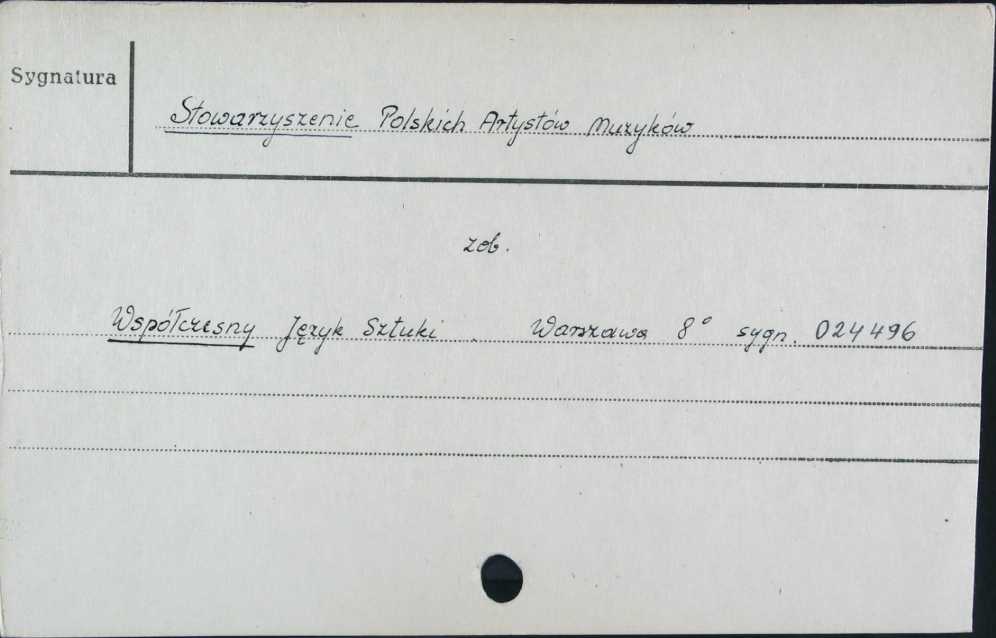 Sygnatura
Stowarzyszenie Polskich Artystów Muzyków
zob.
Współczesny Język Sztuki. Warszawa 8° sygn. 024496